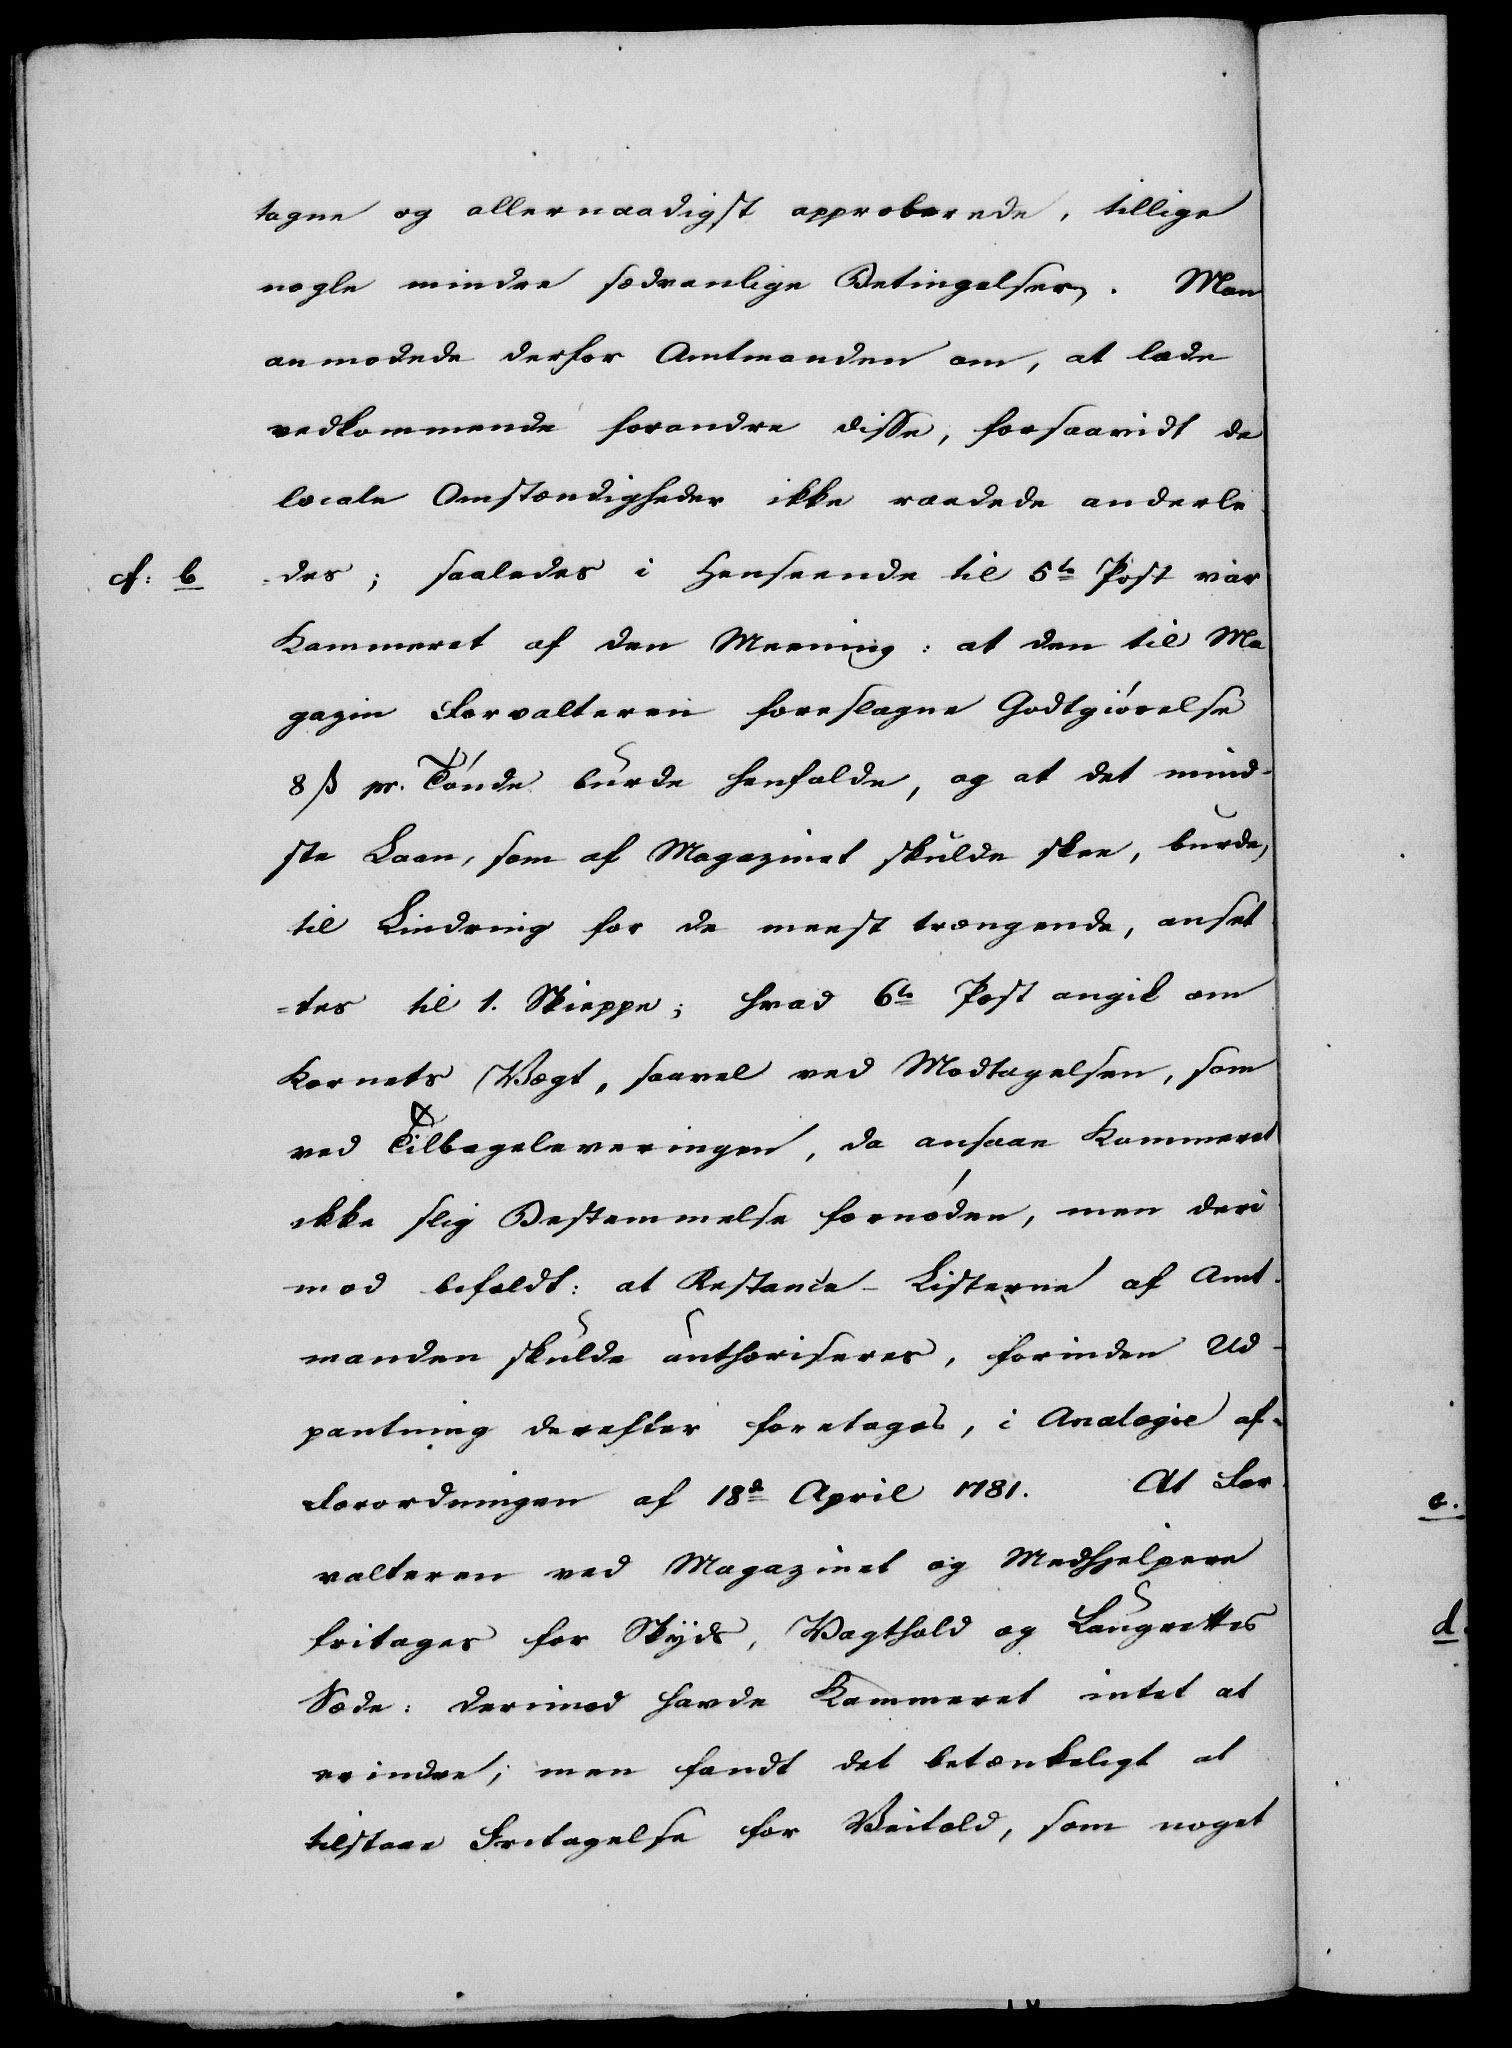 tagne og allernaadigst approberede, tillige
nogle mindre sædvanlige Betingelser. Man
anmodede derfor Amtmanden om, at lade
vedkommende forandre disse, forsaavidt de
locale Omstændigheder ikke raadede anderle
cf: b =des; saaledes i Henseende til 5te Post var
Kammeret af den Meening: at den til Ma
gazin Forvalteren foreslagne Godtgiörelse
8 ß pr. Tönde burde henfalde, og at det mind-
ste Laan, som af Magazinet skulde skee, burde,
til Lindring for de meest trængende, anset
=tes til 1. Skieppe; hvad 6te Post angik om
Kornets Vægt, saavel ved Modtagelsen, som
ved Tilbageleveringen, da ansaae Kammeret
ikke slig Bestemmelse fornöden, men deri
mod befaldt: at Restance-Listerne af Amt-
manden skulde authoriseres, forinden Ud-
pantning derefter foretages, i Analogie af
Forordningen af 18de April 1781. At For
valteren ved Magazinet og Medhjelpere
fritages for Skyds, Vagthold og Laugrettes
Sæde: derimod havde Kammeret intet at
erindre; men fandt det betænkeligt at
tilstaae Fritagelse for Veitold, som noget
c.
d.